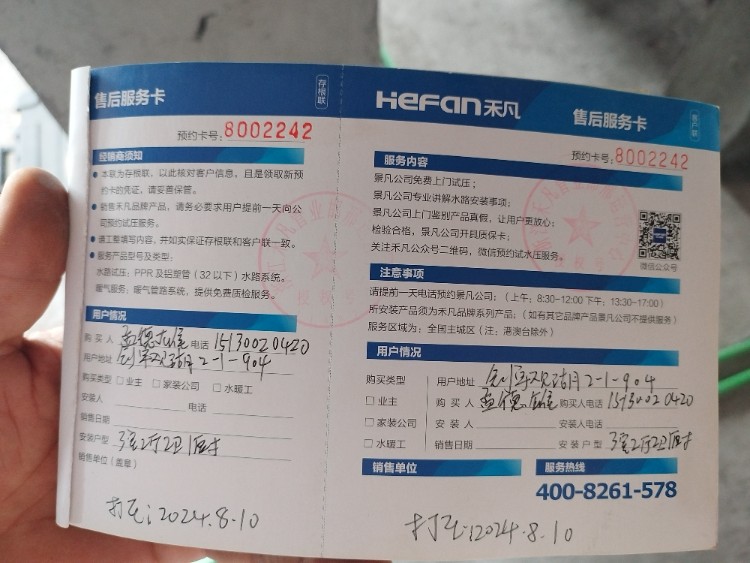 售后服务卡
存根联
预约卡号：8002242
经销商须知
● 本联为存根联，以此核对客户信息，且是领取新预
约卡的凭证，请妥善保管。
● 销售禾凡品牌产品，请务必要求用户提前一天向公
司预约试压服务。
● 请工整填写内容，并如实保证存根联和客户联一致。
● 服务产品型号及类型：
水路试压：PPR及铝塑管（32以下）水路系统。
暖气服务：暖气管路系统，提供免费质检服务。
用户情况
购 买 人 孟德 电话 15130020420
用户地址 2-1-904
购买类型 □ 业主 □ 家装公司 □ 水暖工
安装人 电话
销售日期
安装户型 3室2厅2卫1厨
销售单位（盖章）
打压：2024.8.10
HeFan禾凡
售后服务卡
客户联
预约卡号：8002242
服务内容
景凡公司免费上门试压；
景凡公司专业讲解水路安装事项；
景凡公司上门鉴别产品真假，让用户更放心；
检验合格，景凡公司开具质保卡；
关注禾凡公众号二维码，微信预约试水压服务。
微信公众号
注意事项
请提前一天电话预约景凡公司；（上午：8:30-12:00 下午：13:30-17:00）
所安装产品须为禾凡品牌系列产品；（如有其它品牌产品景凡公司不提供服务）
服务区域为：全国主城区（注：港澳台除外）
用户情况
购买类型 用户地址 2-1-904
□ 业主 购 买 人 孟德 购买人电话 15130020420
□ 家装公司 安 装 人 安装人电话
□ 水暖工 销售日期 安装户型 3室2厅2卫1厨
销售单位 服务热线
400-8261-578
打压：2024.8.10